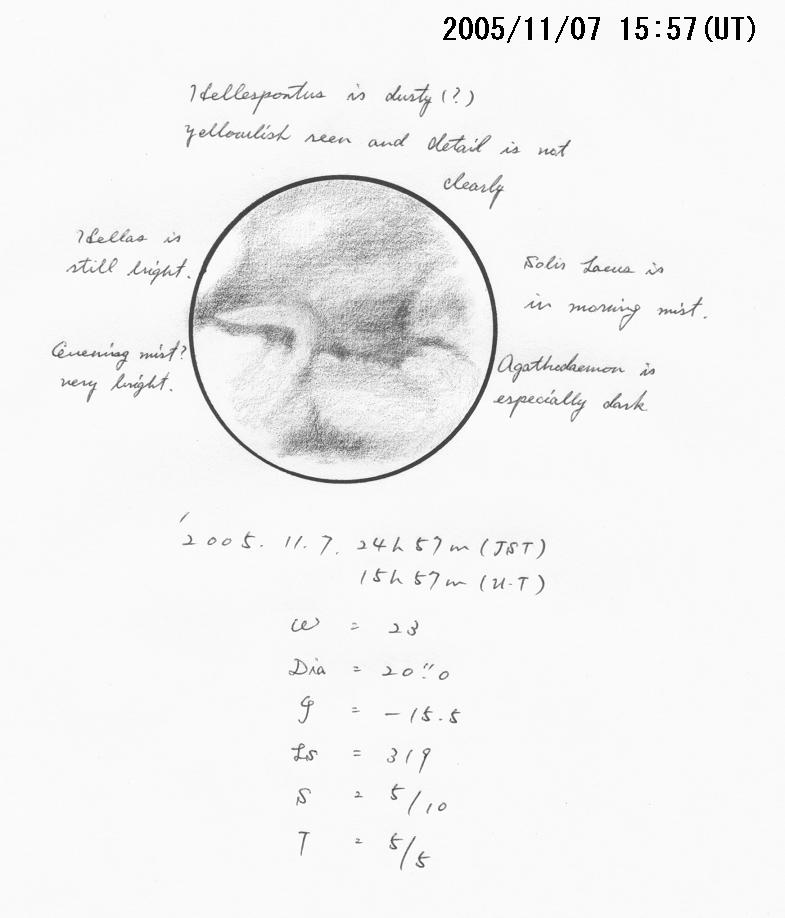 2005/11/07 15:57(UT)
Hellespontus is dusty(?)
yellowish seen and detail is not
clearly
Hellas is
still bright.
Solis Lacus is
in morning mist.
Evening mist?
very bright.
Agathodaemon is
especially dark
'2005. 11. 7. 24h 57m (JST)
15h 57m (U.T)
ω = 23
Dia = 20".0
φ = -15.5
Ls = 319
S = 5/10
T = 5/5